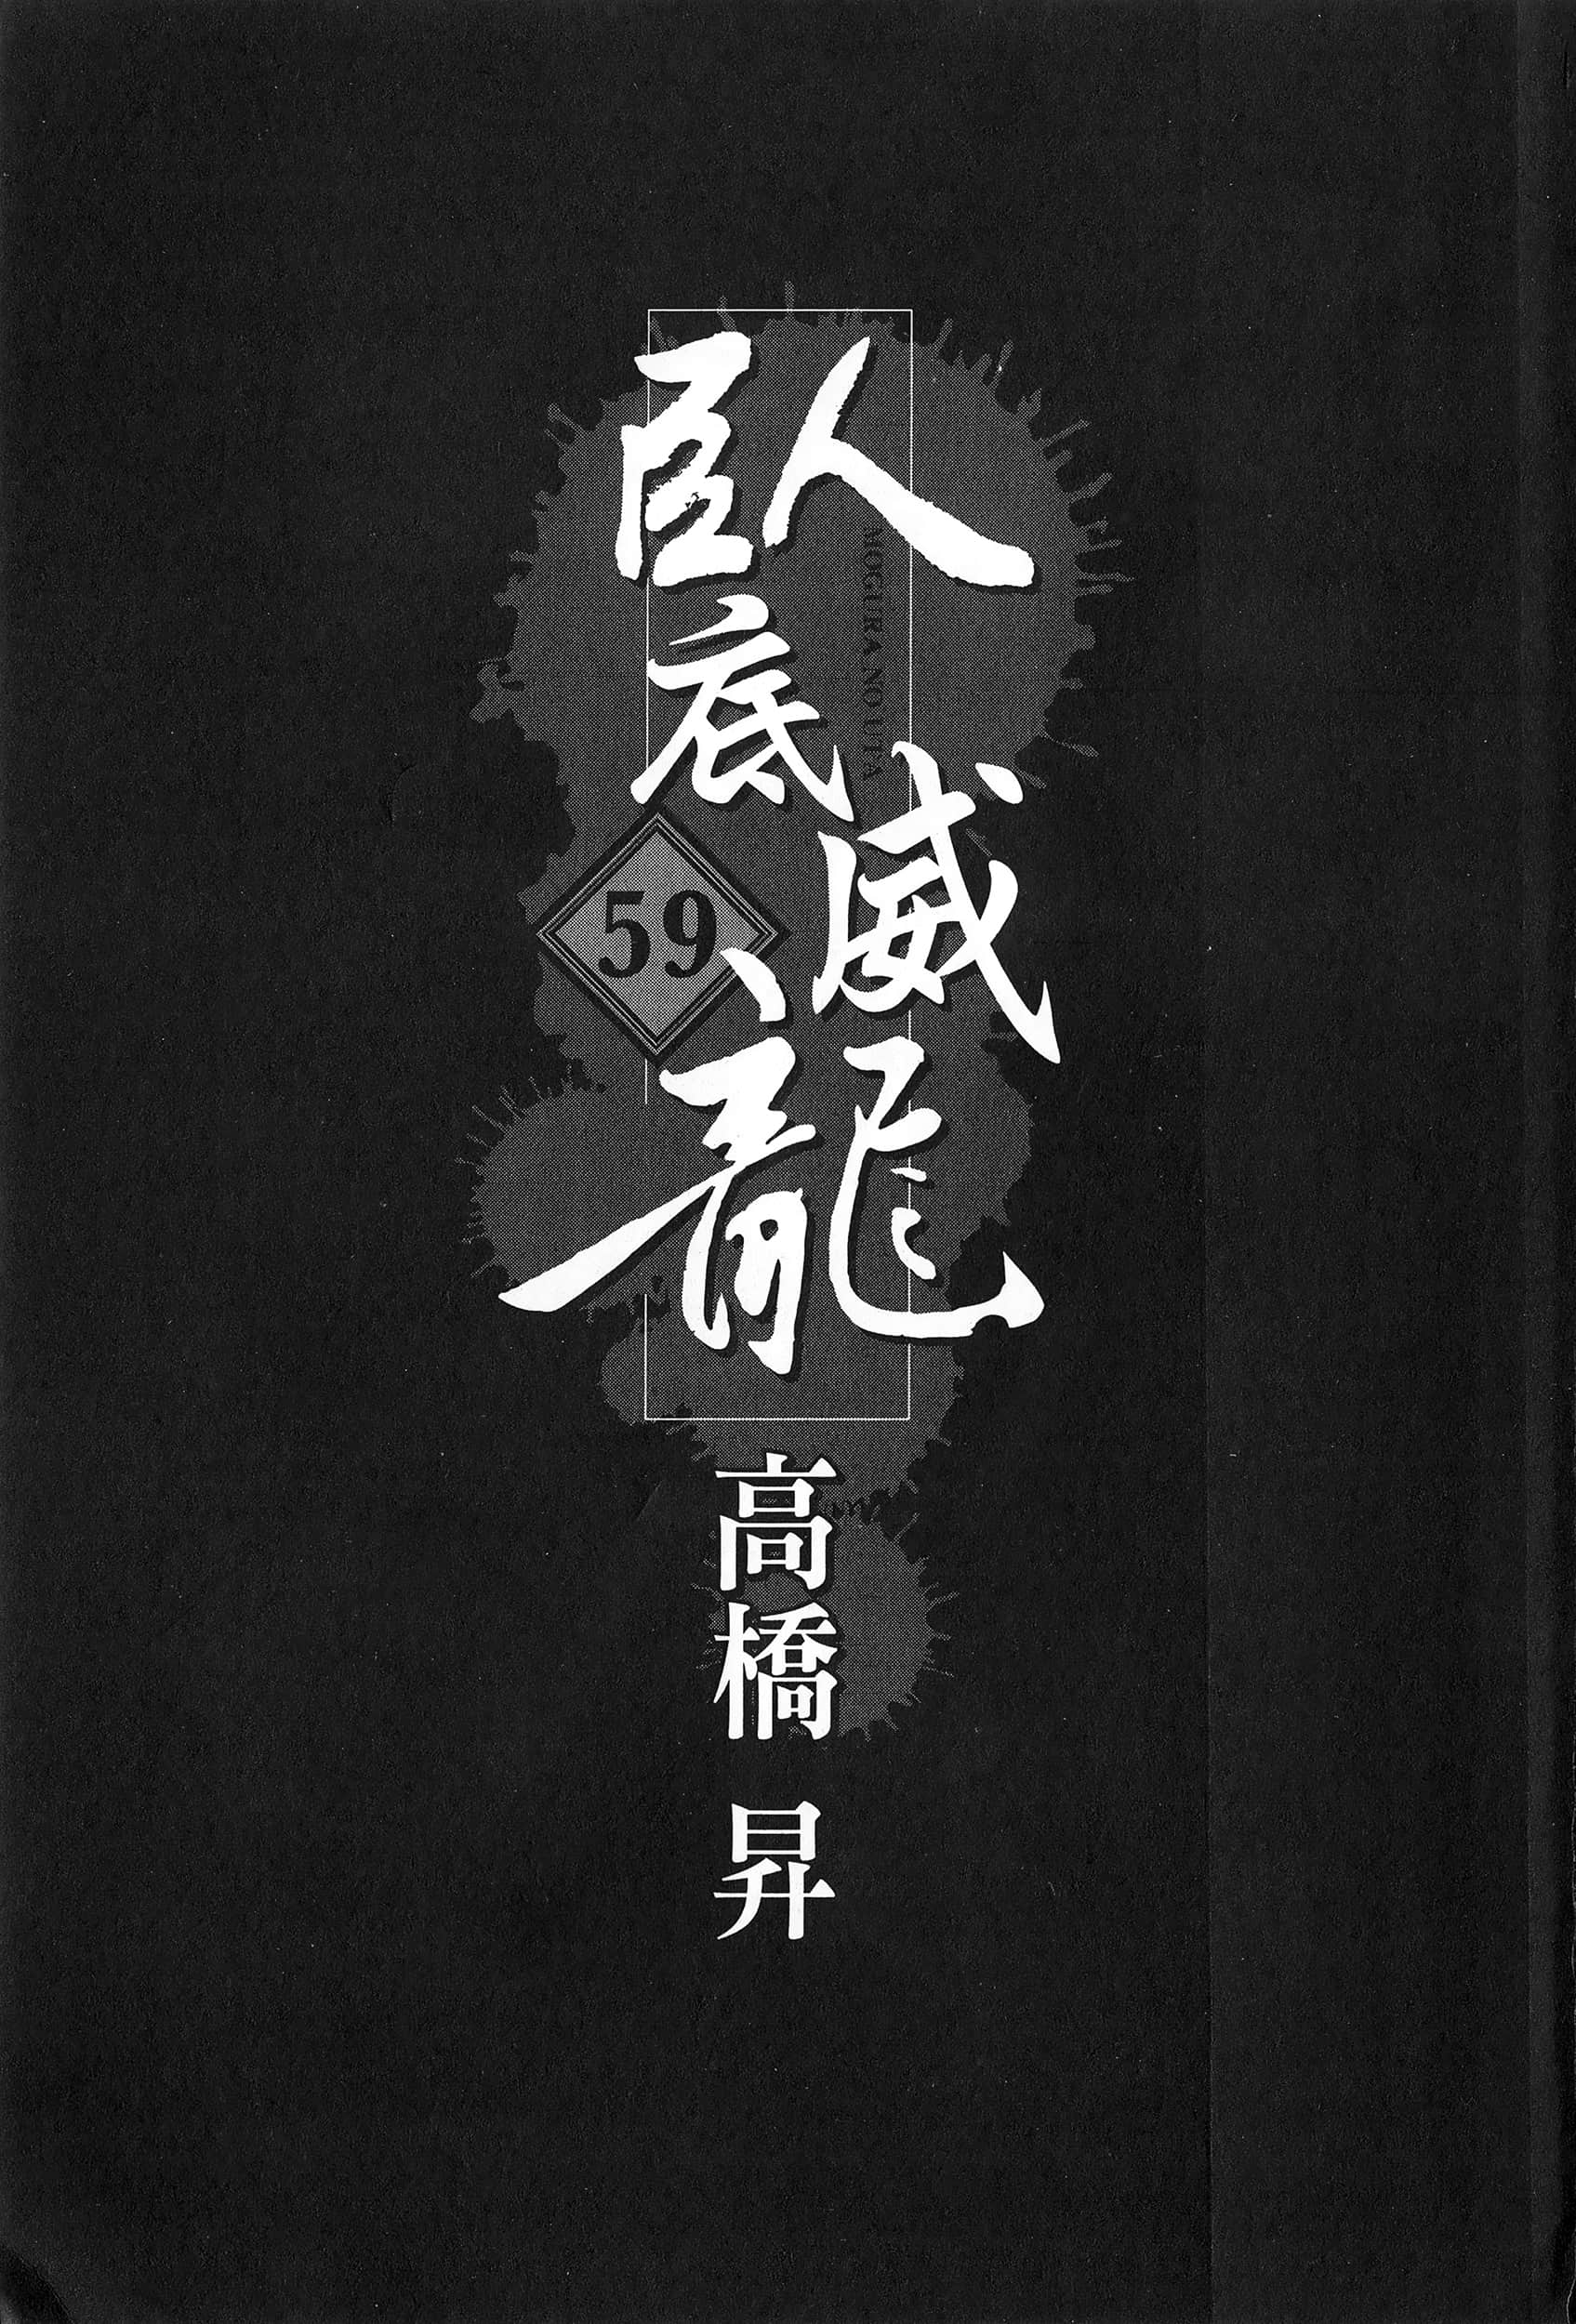 臥底威龍
MOGURA NO UTA
59
高橋 昇